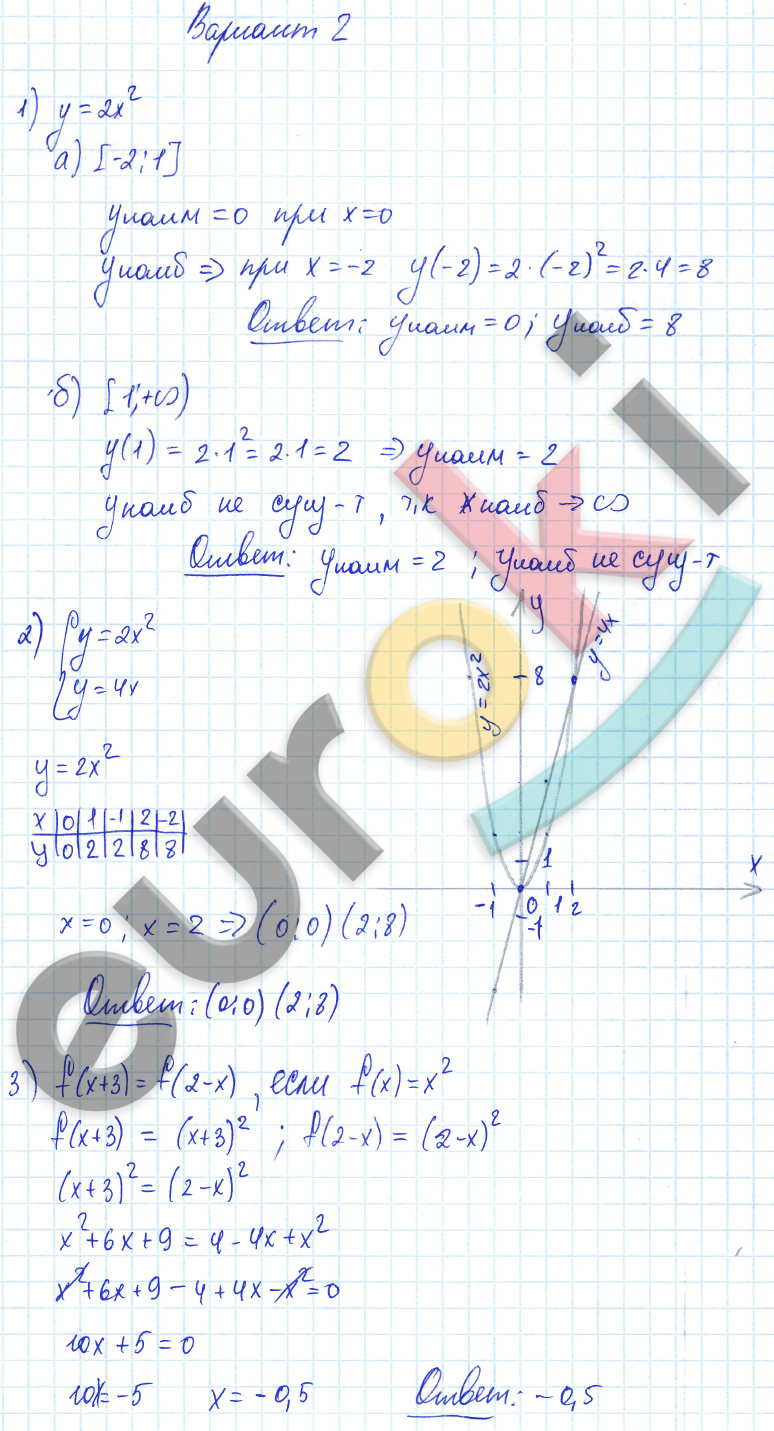 Вариант 2
1) y = 2x²
а) [-2; 1]
yнаим = 0 при x = 0
yнаиб => при x = -2 y(-2) = 2·(-2)² = 2·4 = 8
Ответ: yнаим = 0; yнаиб = 8
б) [1; +∞)
y(1) = 2·1² = 2·1 = 2 => yнаим = 2
yнаиб не сущ-т, т,к xнаиб → ∞
Ответ: yнаим = 2 ; yнаиб не сущ-т
2) { y = 2x²
{ y = 4x
y = 2x²
x | 0 | 1 | -1 | 2 | -2
y | 0 | 2 | 2 | 8 | 8
x = 0; x = 2 => (0; 0) (2; 8)
Ответ: (0; 0) (2; 8)
y
y = 2x²
y = 4x
8
1
x
-1 0 1 2
-1
3) f(x+3) = f(2-x), если f(x) = x²
f(x+3) = (x+3)² ; f(2-x) = (2-x)²
(x+3)² = (2-x)²
x² + 6x + 9 = 4 - 4x + x²
x² + 6x + 9 - 4 + 4x - x² = 0
10x + 5 = 0
10x = -5 x = -0,5 Ответ: -0,5
euroki